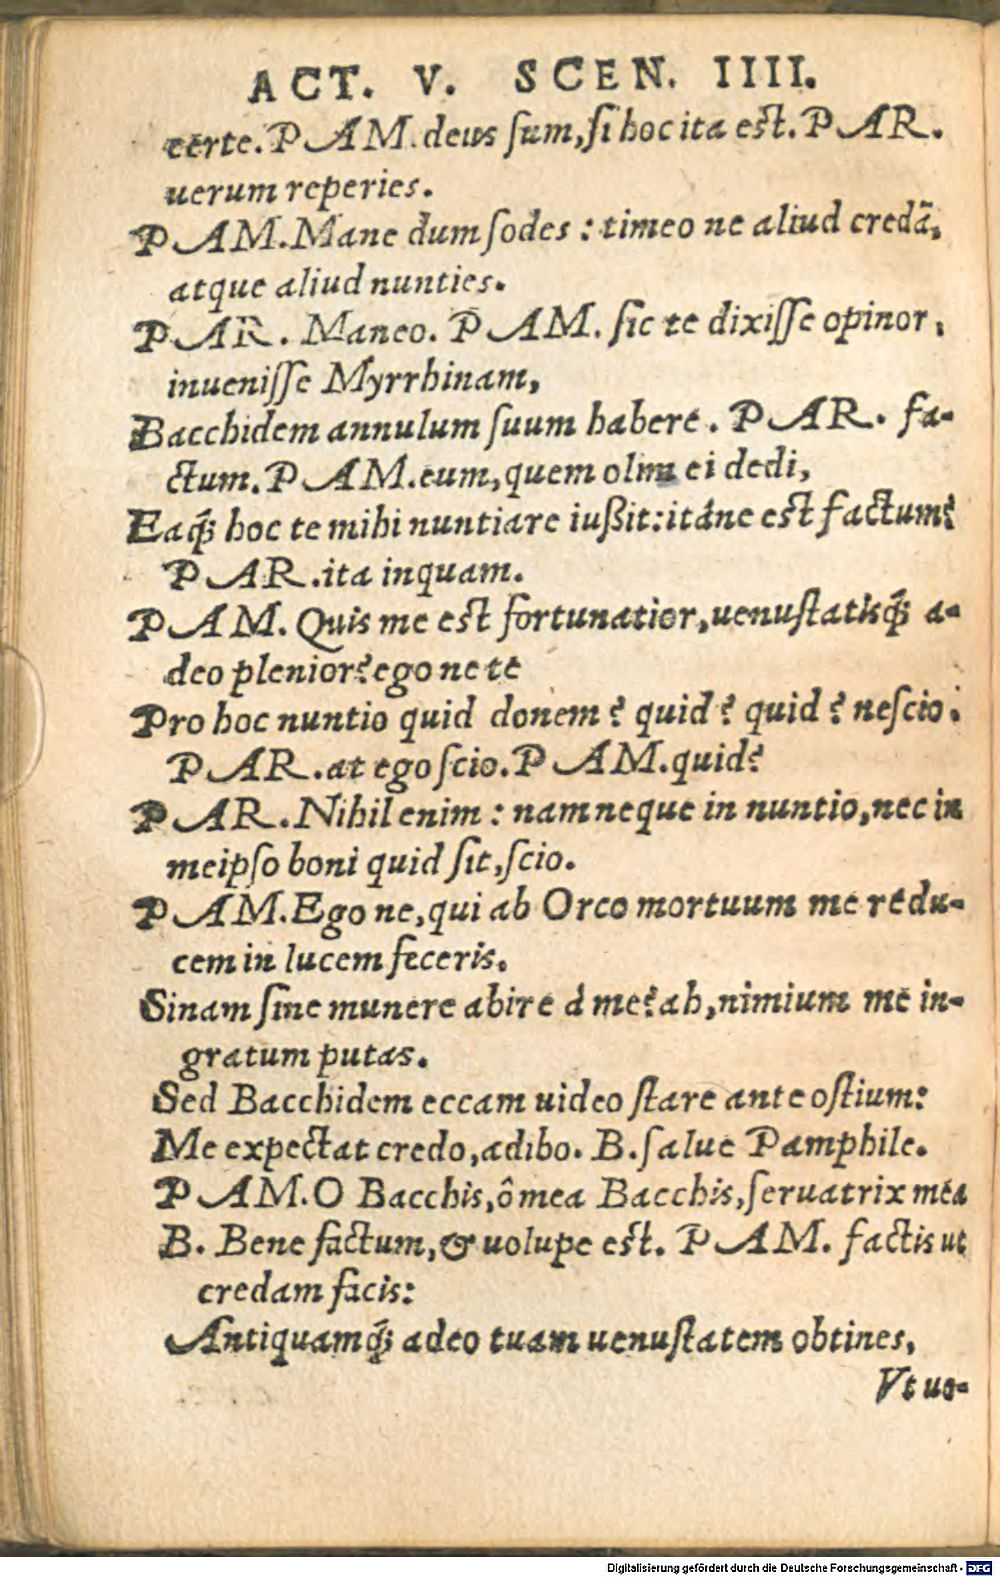 ACT. V. SCEN. IIII.
certe. PAM. deus ſum, ſi hoc ita eſt. PAR.
uerum reperies.
PAM. Mane dum ſodes : timeo ne aliud credā,
atque aliud nunties.
PAR. Maneo. PAM. ſic te dixiſſe opinor,
inueniſſe Myrrhinam,
Bacchidem annulum ſuum habere. PAR. fa-
ctum. PAM. eum, quem olim ei dedi,
Eaq́; hoc te mihi nuntiare iußit: itáne eſt factum?
PAR. ita inquam.
PAM. Quis me eſt fortunatior, uenuſtatisq́; a-
deo plenior? ego ne te
Pro hoc nuntio quid donem? quid? quid? neſcio.
PAR. at ego ſcio. PAM. quid?
PAR. Nihil enim : nam neque in nuntio, nec in
meipſo boni quid ſit, ſcio.
PAM. Ego ne, qui ab Orco mortuum me redu-
cem in lucem feceris.
Sinam ſine munere abire à me? ah, nimium me in-
gratum putas.
Sed Bacchidem eccam uideo ſtare ante oſtium:
Me expectat credo, adibo. B. ſalue Pamphile.
PAM. O Bacchis, ô mea Bacchis, ſeruatrix mea
B. Bene factum, & uolupe eſt. PAM. factis ut
credam facis:
Antiquamq́; adeo tuam uenuſtatem obtines,
Vt uo-
Digitalisierung gefördert durch die Deutsche Forschungsgemeinschaft - DFG